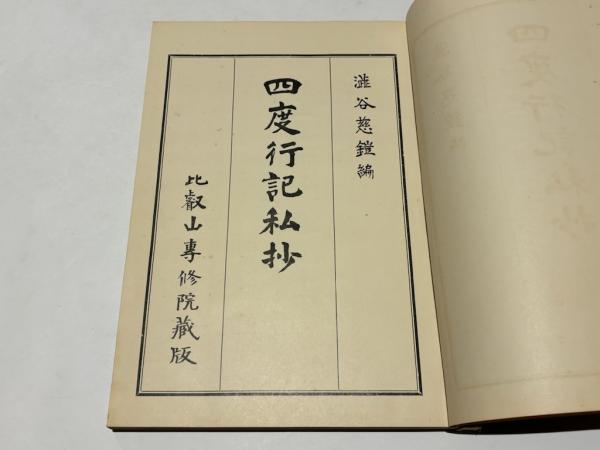 澁谷慈鎧編
四度行記私抄
比叡山專修院藏版